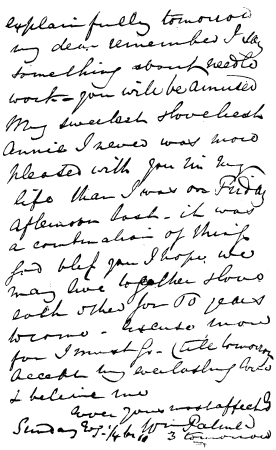 explain fully tomorrow
my dear - remember I say
something about needle
work - you will be amused
My sweetest loveliest
Annie I never was more
pleased with you in my
life than I was on Friday
afternoon last - it was
a combination of things
God bless you I hope we
may live together & love
each other for 60 years
to come - excuse more
for I must go - (till tomorrow
accept my everlasting love
& believe me
ever yours most affectly
Sunday Eg - 1/4 to 10 Wm Palmer
3 tomorrow